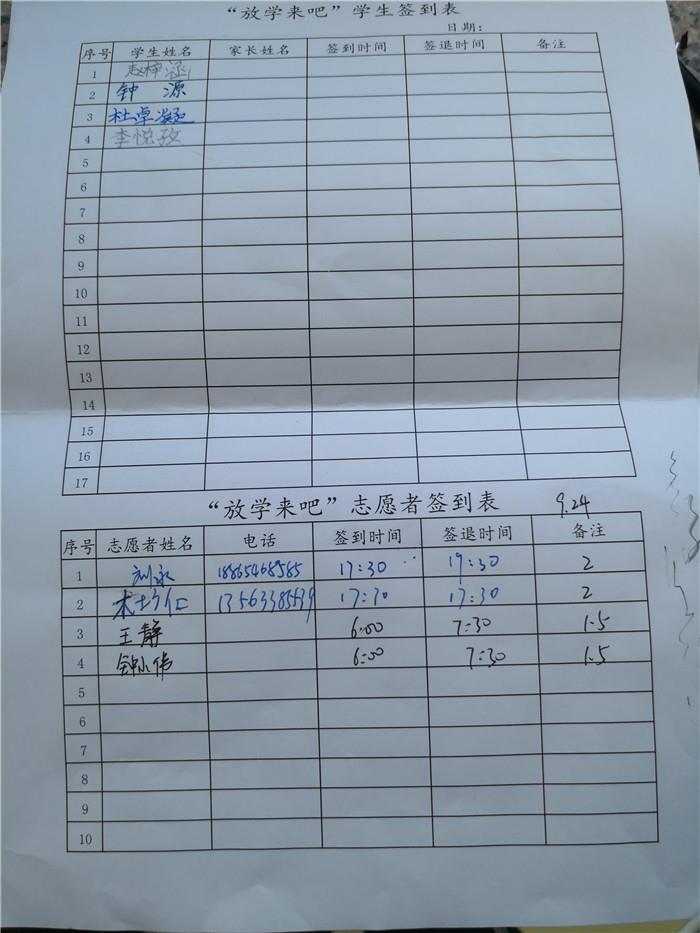 “放学来吧”学生签到表
日期：
序号 学生姓名 家长姓名 签到时间 签退时间 备注
1 梓涵
2 钟 源
3 杜卓凝
4 李悦孜
5
6
7
8
9
10
11
12
13
14
15
16
17
“放学来吧”志愿者签到表 9.24
序号 志愿者姓名 电话 签到时间 签退时间 备注
1 刘永 18865468585 17:30 19:30 2
2 13563385539 17:30 19:30 2
3 王静 6:00 7:30 1.5
4 钟小伟 6:00 7:30 1.5
5
6
7
8
9
10